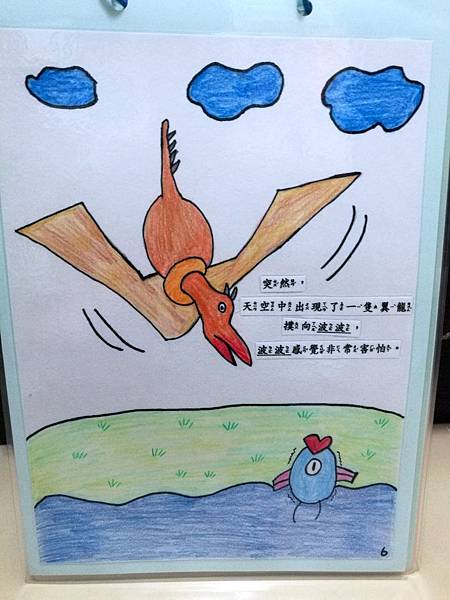 突然，
天空中出現了一隻翼龍
撲向波波，
波波感覺非常害怕。
6